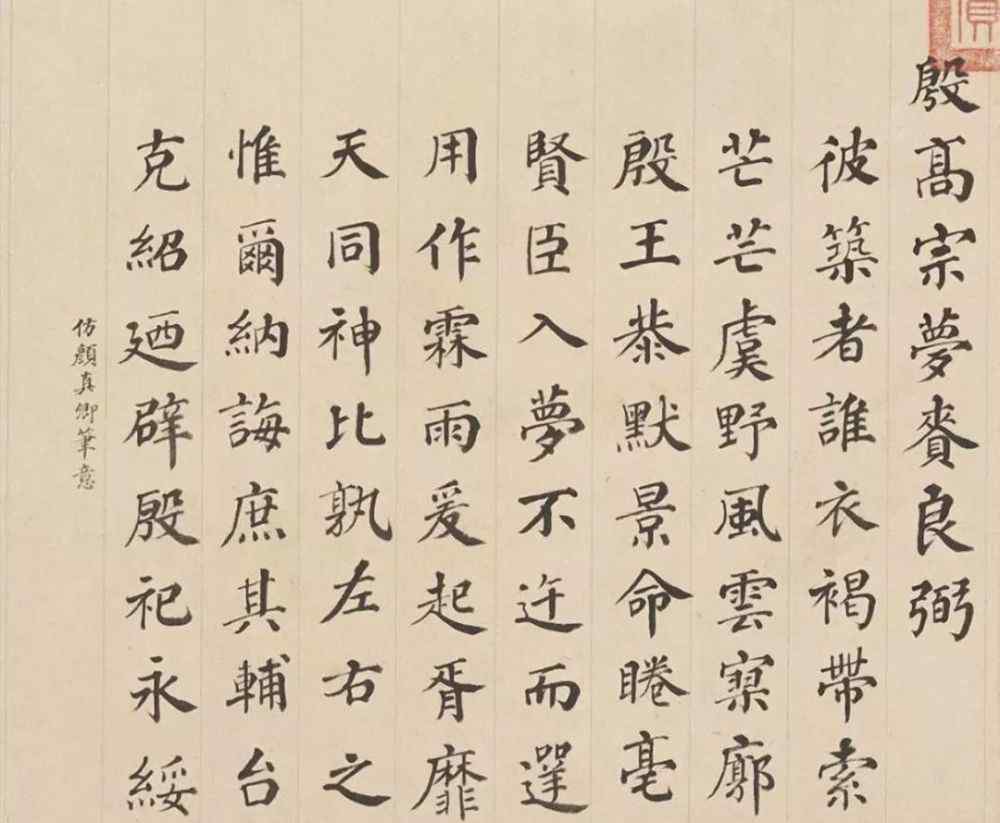 殷髙宗夢賚良弼
彼築者誰衣褐帶索
芒芒虞野風雲寥廓
殷王恭默景命睠亳
賢臣入夢不迕而遌
用作霖雨爰起胥靡
天同神比孰左右之
惟爾納誨庶其輔台
克紹廼辟殷祀永綏
仿顏真卿筆意